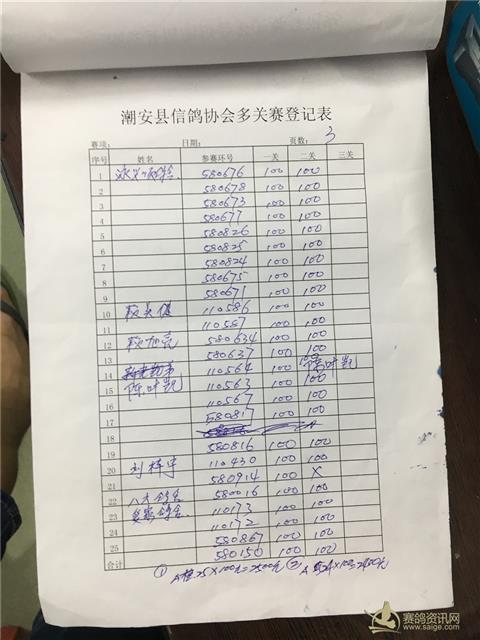 潮安县信鸽协会多关赛登记表
赛项: 日期: 页数: 3
序号 姓名 参赛环号 一关 二关 三关
1 580676 100 100
2 580678 100 100
3 580673 100 100
4 580677 100 100
5 580826 100 100
6 580825 100 100
7 580824 100 100
8 580675 100 100
9 580671 100 100
10 110586 100 100
11 110587 100 100
12 580634 100 100
13 580637 100 100
14 110564 100 100 陈叶凯
15 陈叶凯 110563 100 100
16 110567 100 100
17 580817 100 100
18
19 580816 100 100
20 110430 100 100
21 580914 100 X
22 580016 100 100
23 110173 100 100
24 110172 100 100
25 580867 100 100
合计: 580150 100 100
① A组25×100元=2500元 ② A组24×100=2400元
赛鸽资讯网
www.saige.com